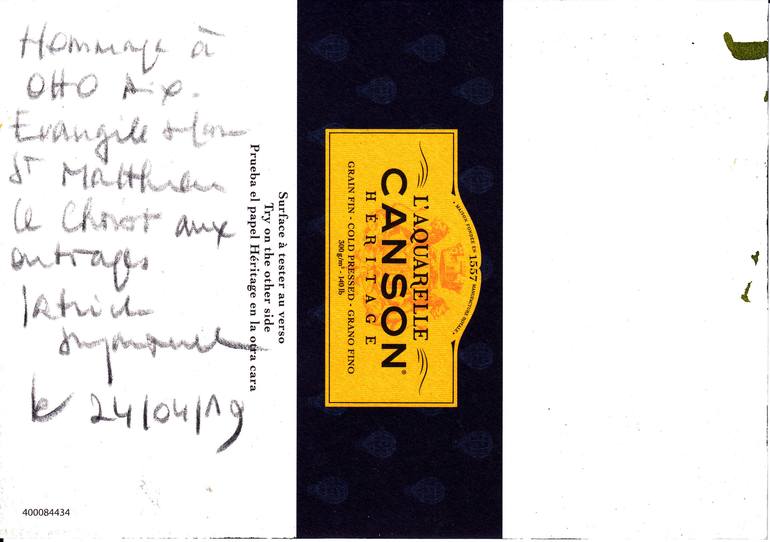 Hommage à
OttO Dix.
Evangile selon
St Matthieu
le Christ aux
outrages
Patrick
le 24/04/19
400084434
Surface à tester au verso
Try on the other side
Prueba el papel Héritage en la otra cara
• MAISON FONDÉE EN 1557 MANUFACTURE ROYALE •
L'AQUARELLE
CANSON®
HÉRITAGE
GRAIN FIN - COLD PRESSED - GRANO FINO
300 g/m² - 140 lb